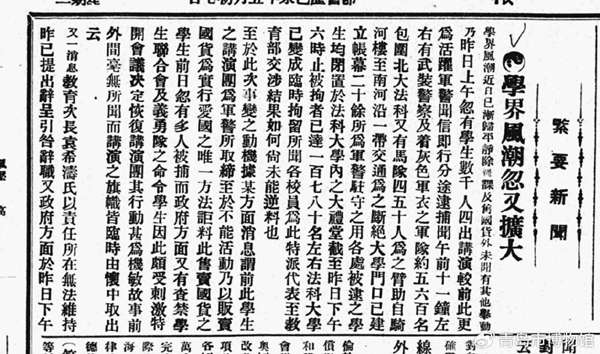 緊要新聞
學界風潮忽又擴大
學界風潮近日已漸歸平靜除罷課及奔國貨外未聞有其他舉動
乃昨日上午忽有學生數千人四出講演較前此更
爲活躍軍警聞信即行分途逮捕聞午前十一鐘左
右有武裝警察及着灰色軍衣之軍隊約五六百名
包圍北大法科又有馬隊四五十人爲之臂助自騎
河樓至南河沿一帶交通爲之斷絕大學門口已建
立帳幕二十餘所爲軍警駐守之用各處被逮之學
生均閉置於法科大學內之大禮堂截至昨日下午
六時止被拘者已達一百七八十名左右法科大學
已變成臨時拘留所聞各校員爲此特派代表至教
育部交涉結果如何尙未能逆料也
至於此次事變之動機據某方面消息謂前此學生
之講演團爲軍警所取締至於不能活動乃以販賣
國貨爲實行愛國之唯一方法詎料此售賣國貨之
學生前日忽有多人被捕而政府方面又有查禁學
生聯合會及義勇隊之命令學生因此頗受刺激特
開會議决定恢復講演團其行動甚爲機敏故事前
外間毫無所聞而講演之旗幟皆臨時由懷中取出
云
又一消息教育次長袁希濤氏以責任所在無法維持
昨已提出辭呈引咎辭職又政府方面於昨日下午
青岛市博物馆